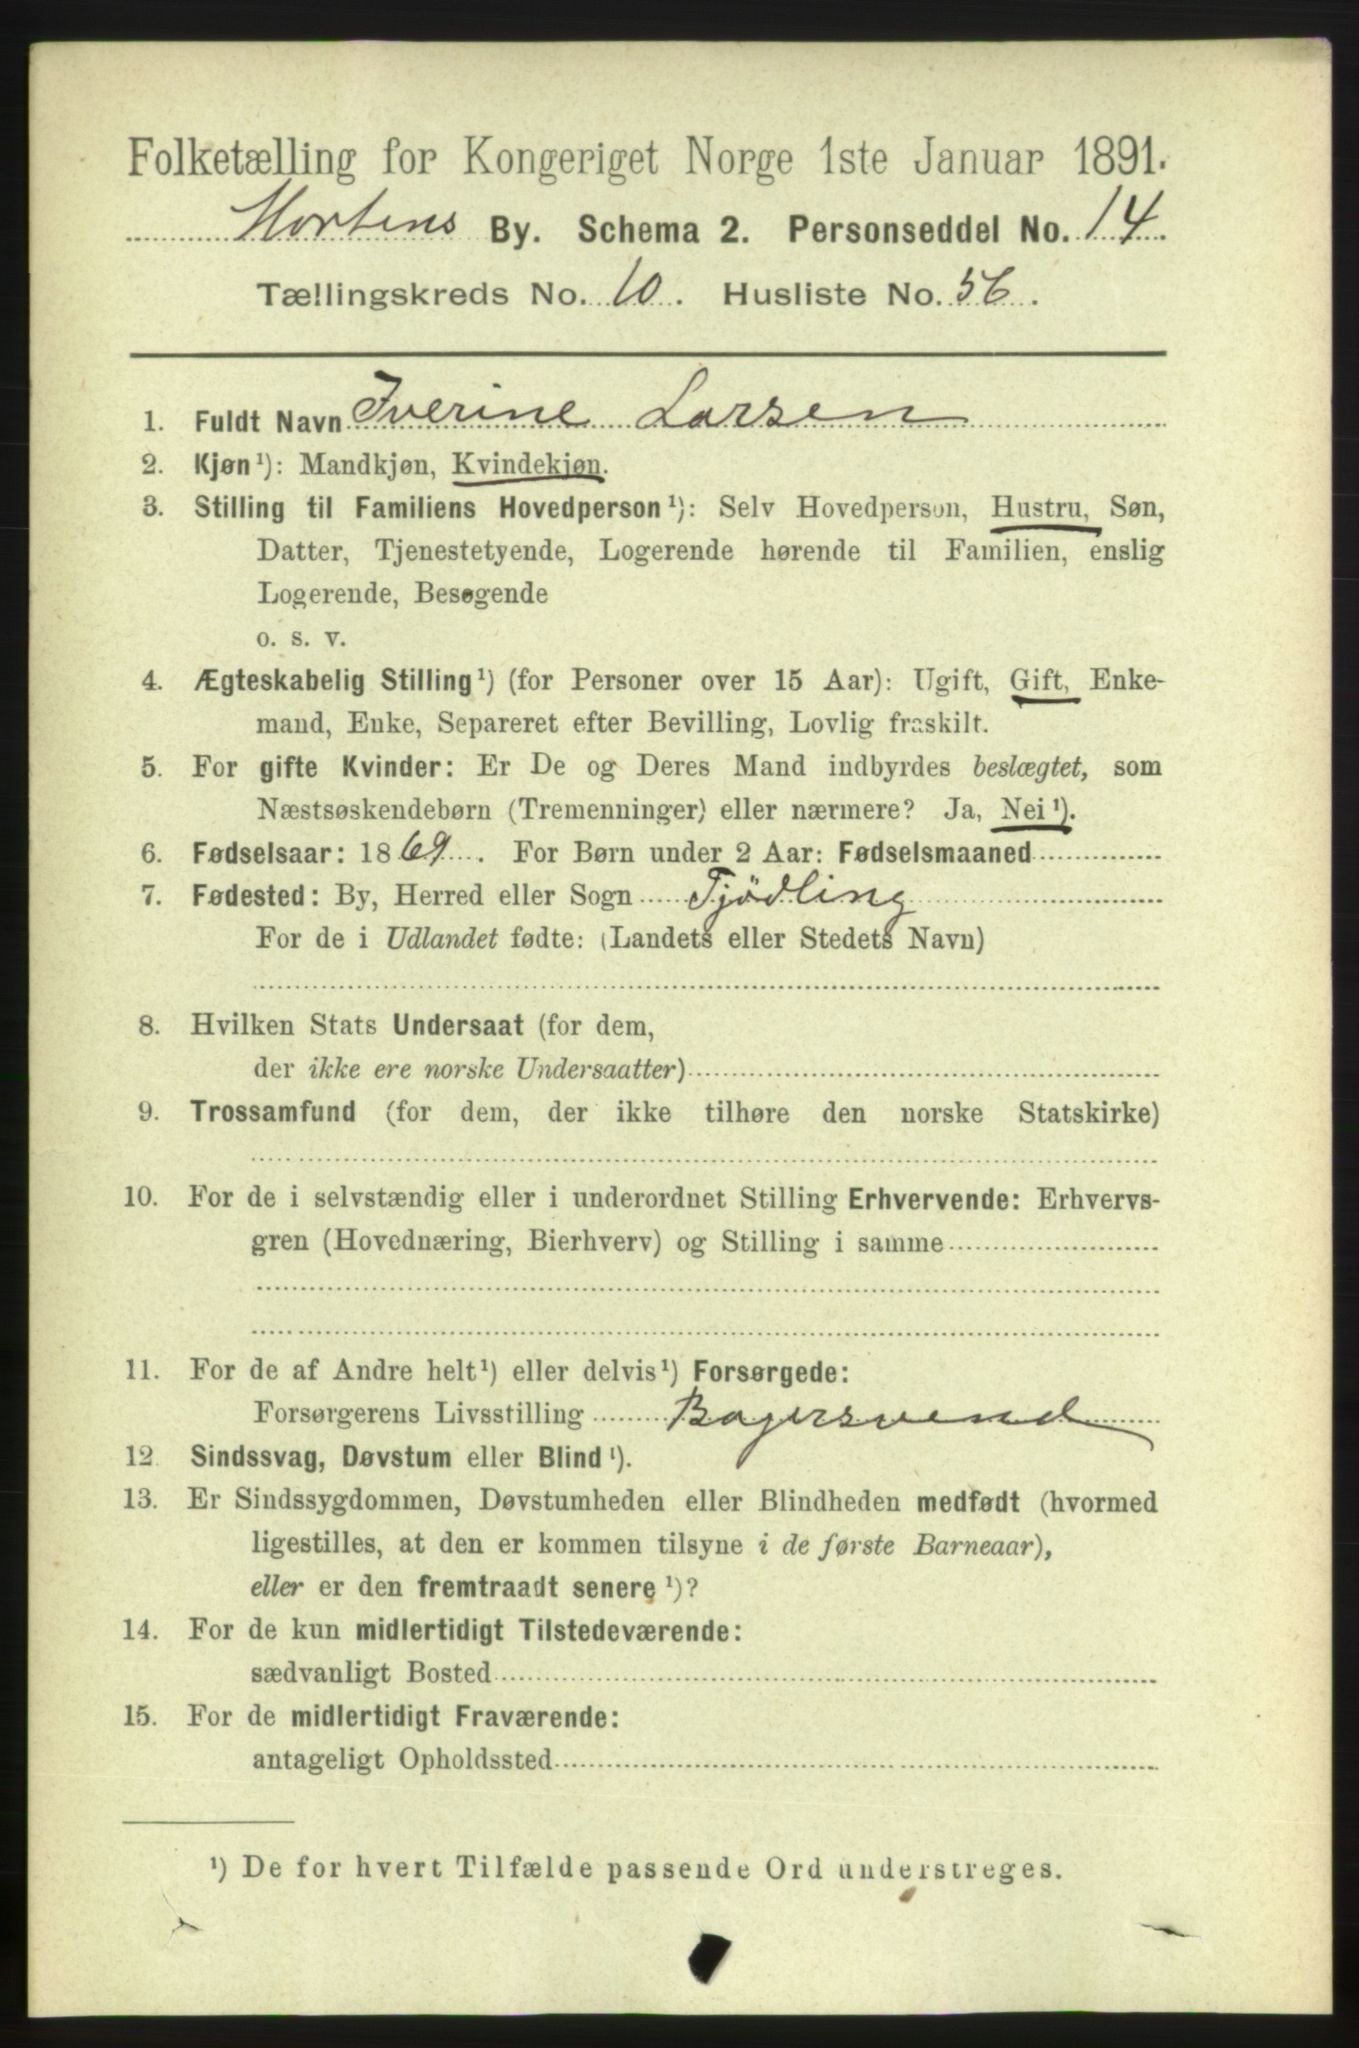 Folketælling for Kongeriget Norge 1ste Januar 1891.
Hortens By. Schema 2. Personseddel No. 14
Tællingskreds No. 10. Husliste No. 56.
1. Fuldt Navn Iverine Larsen
2. Kjøn¹): Mandkjøn, Kvindekjøn.
3. Stilling til Familiens Hovedperson¹): Selv Hovedperson, Hustru, Søn,
Datter, Tjenestetyende, Logerende hørende til Familien, enslig
Logerende, Besøgende
o. s. v.
4. Ægteskabelig Stilling¹) (for Personer over 15 Aar): Ugift, Gift, Enke-
mand, Enke, Separeret efter Bevilling, Lovlig fraskilt.
5. For gifte Kvinder: Er De og Deres Mand indbyrdes beslægtet, som
Næstsøskendebørn (Tremenninger) eller nærmere? Ja, Nei¹).
6. Fødselsaar: 1869. For Børn under 2 Aar: Fødselsmaaned
7. Fødested: By, Herred eller Sogn Tjödling
For de i Udlandet fødte: (Landets eller Stedets Navn)
8. Hvilken Stats Undersaat (for dem,
der ikke ere norske Undersaatter)
9. Trossamfund (for dem, der ikke tilhøre den norske Statskirke)
10. For de i selvstændig eller i underordnet Stilling Erhvervende: Erhvervs-
gren (Hovednæring, Bierhverv) og Stilling i samme
11. For de af Andre helt¹) eller delvis¹) Forsørgede:
Forsørgerens Livsstilling Bagersvend
12. Sindssvag, Døvstum eller Blind¹).
13. Er Sindssygdommen, Døvstumheden eller Blindheden medfødt (hvormed
ligestilles, at den er kommen tilsyne i de første Barneaar),
eller er den fremtraadt senere¹)?
14. For de kun midlertidigt Tilstedeværende:
sædvanligt Bosted
15. For de midlertidigt Fraværende:
antageligt Opholdssted
¹) De for hvert Tilfælde passende Ord understreges.